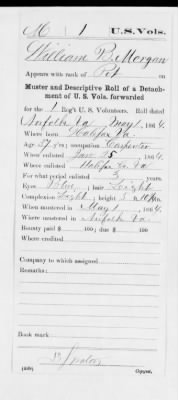 M | 1 | U.S. Vols.
William B. Morgan
Appears with rank of Pvt on
Muster and Descriptive Roll of a Detach-
ment of U. S. Vols. forwarded
for the 1 Reg't U. S. Volunteers. Roll dated
Norfolk Va May 1, 1864.
Where born Halifax Va.
Age 37 y'rs; occupation Carpenter
When enlisted Jan 25, 1864.
Where enlisted Halifax Co. Va
For what period enlisted 3 years.
Eyes Blue; hair Light
Complexion Light; height 5 ft. 10 in.
When mustered in May 1, 1864.
Where mustered in Norfolk Va
Bounty paid $ 100; due $ 100
Where credited
Company to which assigned
Remarks:
Book mark:
Copyist.